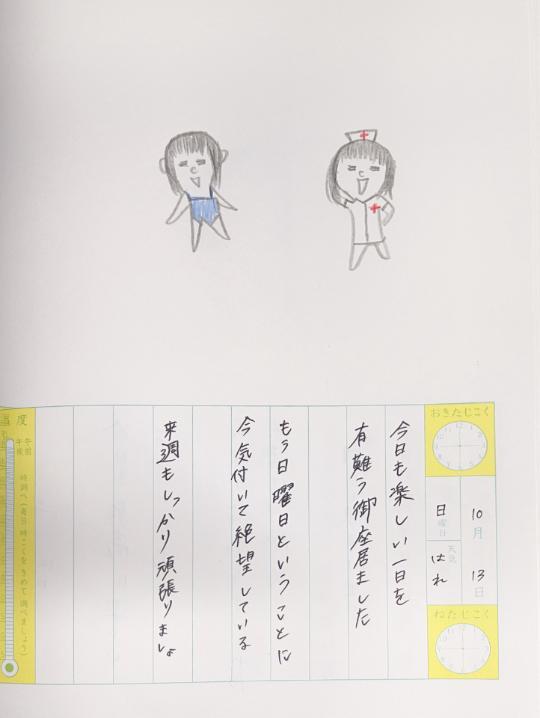 おきたじこく
10月13日
日曜日
天気
はれ
ねたじこく
今日も楽しい一日を
有難う御座居ました
もう日曜日ということに
今気付いて絶望している
来週もしっかり頑張りましょ
温度
午前
午後
時調べ(毎日時こくをきめて調べましょう)